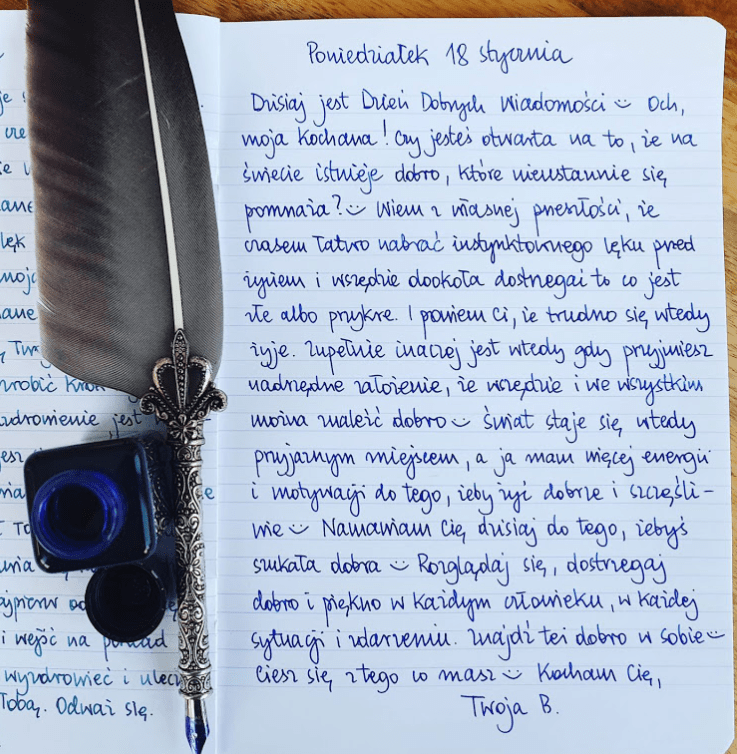 lęk
zrobić krok
zdrowienie jest
i wejść na
wyzdrowieć i
Tobą. Odważ się.
Poniedziałek 18 stycznia
Dzisiaj jest Dzień Dobrych Wiadomości :) Och,
moja Kochana! Czy jesteś otwarta na to, że na
świecie istnieje dobro, które nieustannie się
pomnaża? :) Wiem z własnej przeszłości, że
czasem łatwo nabrać instynktownego lęku przed
życiem i wszędzie dookoła dostrzegać to co jest
złe albo przykre. I powiem Ci, że trudno się wtedy
żyje. Zupełnie inaczej jest wtedy gdy przyjmiesz
nadrzędne założenie, że wszędzie i we wszystkim
można znaleźć dobro :) Świat staje się wtedy
przyjaznym miejscem, a ja mam więcej energii
i motywacji do tego, żeby żyć dobrze i szczęśli-
wie :) Namawiam Cię dzisiaj do tego, żebyś
szukała dobra :) Rozglądaj się, dostrzegaj
dobro i piękno w każdym człowieku, w każdej
sytuacji i zdarzeniu. Znajdź też dobro w sobie :)
Ciesz się z tego co masz :) Kocham Cię,
Twoja B.